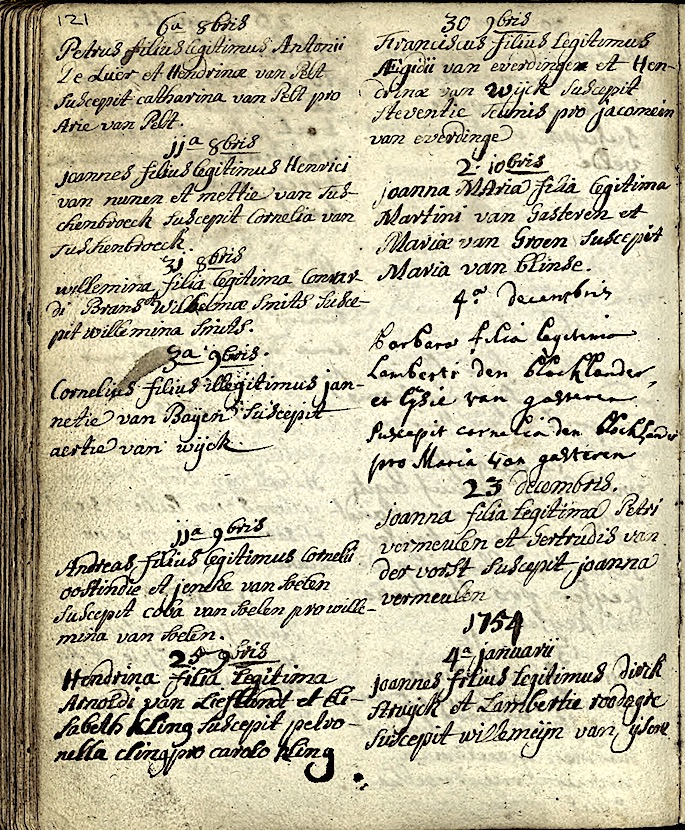 121
6a 8bris
Petrus filius legitimus Antonii
De Luer et Hendrinæ van Pelt
suscepit catharina van Pelt pro
Arie van Pelt.
11a 8bris
Joannes filius legitimus Henrici
van nunen et mettie van Tus-
chenbroeck suscepit Cornelia van
Tusschenbroeck.
31 8bris
willemina filia legitima Conrar-
di Brans et Wilhelmæ Smits susce-
pit willemina Smits.
3a 9bris.
Cornelius filius illegitimus jan-
netie van Bayen suscepit
aertie van wijck.
11a 9bris
Andreas filius legitimus Cornelii
oostindie et jeneke van soelen
suscepit coba van soelen pro wille-
mina van soelen.
25 9bris
Hendrina filia legitima
Arnoldi van Lieflandt et Eli-
sabeth Kling suscepit petro-
nella cling pro carolo Kling
30 9bris
Franciscus filius Legitimus
Ægidii van everdingen et Hen-
drinæ van wijck suscepit
steventie pro jacomein
van everdinge
2 10bris
Joanna MAria filia legitima
Martini van Gasteren et
Mariæ van Groen suscepit
Maria van Clinse.
4a decembris
barbara filia legitima
Lamberti den blocklander
et van gasteren
suscepit cornelia den blocklander
pro Maria van gasteren
23 decembris.
Joanna filia Legitima Petri
vermeulen et Gertrudis van
der vorst suscepit joanna
vermeulen
1754
4a januarii
joannes filius Legitimus dirck
Struyck et Lambertie
suscepit willemeijn van ijsere